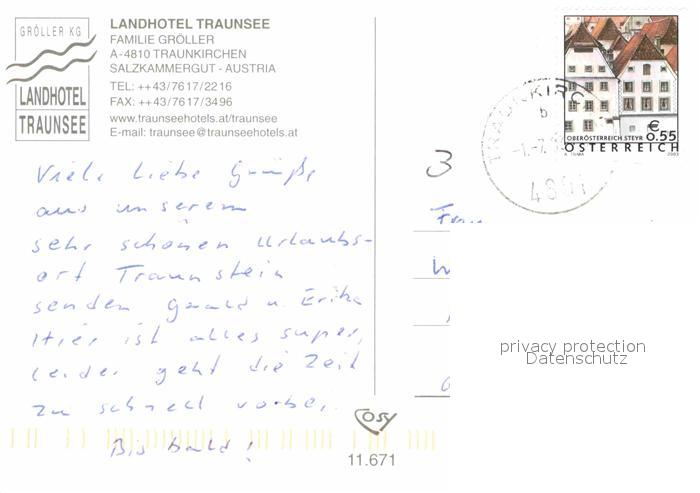 GRÖLLER KG
LANDHOTEL
TRAUNSEE
LANDHOTEL TRAUNSEE
FAMILIE GRÖLLER
A-4810 TRAUNKIRCHEN
SALZKAMMERGUT - AUSTRIA
TEL: ++43/7617/2216
FAX: ++43/7617/3496
www.traunseehotels.at/traunsee
E-mail: traunsee@traunseehotels.at
Viele liebe Grüße
aus unserem
sehr schönen Urlaubs-
ort Traunstein
senden Gerald u. Erika
Hier ist alles super,
leider geht die Zeit
zu schnell vorbei.
Bis bald!
OBERÖSTERREICH STEYR
€ 0.55
ÖSTERREICH
2003
TRAUNKIRC
b
3
privacy protection
Datenschutz
COSY
11.671